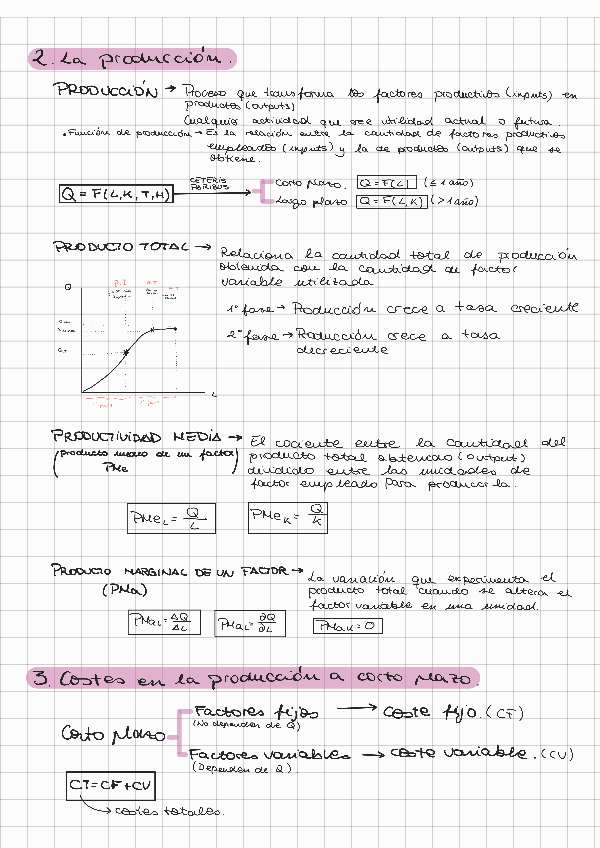 2. La producción.
PRODUCCIÓN → Proceso que transforma los factores productivos (inputs) en
productos (outputs)
Cualquier actividad que cree utilidad actual o futura.
• Función de producción → Es la relación entre la cantidad de factores productivos
empleados (inputs) y la de productos (outputs) que se
obtiene.
Q = F(L, K, T, H)
CETERIS
PARIBUS
Corto plazo. Q = F(L) (≤ 1 año)
Largo plazo Q = F(L, K) (> 1 año)
PRODUCTO TOTAL → Relaciona la cantidad total de producción
obtenida con la cantidad de factor
variable utilitada
1ª fase → Producción crece a tasa creciente
2ª fase → Producción crece a tasa
decreciente
Q
P.I
L
PRODUCTIVIDAD MEDIA → El cociente entre la cantidad del
(producto medio de un factor) producto total obtenido (output)
PMe dividido entre las unidades de
factor empleado para producirla.
PMeL = Q/L
PMeK = Q/K
PRODUCTO MARGINAL DE UN FACTOR → La variación que experimenta el
(PMa) producto total cuando se altera el
factor variable en una unidad.
PMaL = ΔQ/ΔL
PMaL = ∂Q/∂L
PMaK = 0
3. Costes en la producción a corto plazo.
Corto plazo
Factores fijos → coste fijo. (CF)
(No dependen de Q)
Factores variables → coste variable. (CV)
(Dependen de Q)
CT = CF + CV
→ costes totales.